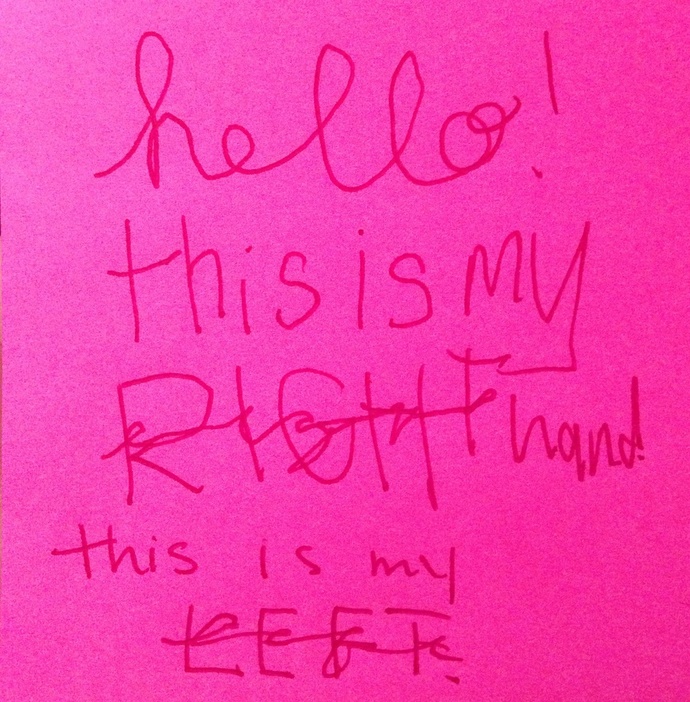 hello!
this is my
RIGHT hand!
this is my
LEFT.